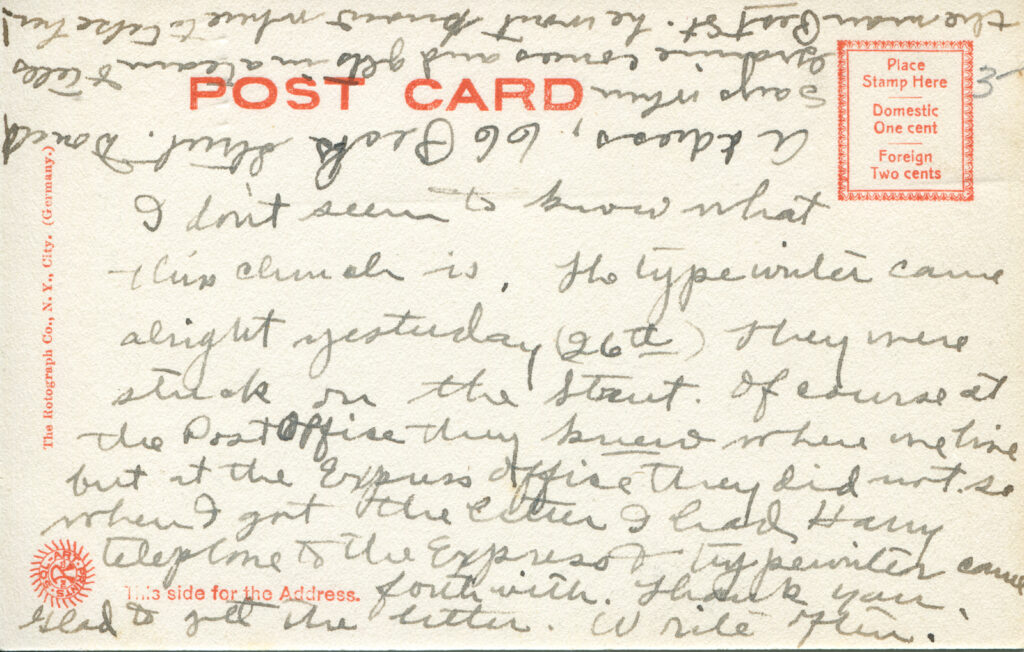 POST CARD
Place
Stamp Here
Domestic
One cent
Foreign
Two cents
3
Address, 66 Street.
says when
comes and gets in a team & tells
the man Best St. he wont know where to take her!
I don't seem to know what
this church is. The typewriter came
alright yesterday (26th) They were
stuck on the Street. Of course at
the Post Office they knew where we live
but at the Express Office they did not. so
when I got the letter I had Harry
telephone to the Express & typewriter came
forthwith. Thank you.
Glad to get the letter. Write often.
This side for the Address.
The Rotograph Co., N. Y., City. (Germany.)